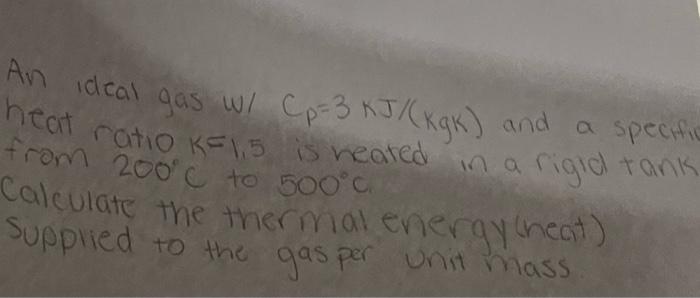 An ideal gas w/ Cp=3 KJ/(kgK) and a specific
heat ratio K=1.5 is heated in a rigid tank
from 200°C to 500°C.
Calculate the thermal energy (heat)
supplied to the gas per unit mass.